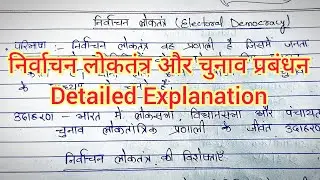 निर्वाचन लोकतंत्र (Electoral Democracy)
परिभाषा :- निर्वाचन लोकतंत्र वह प्रणाली है जिसमें जनता
निर्वाचन लौकतंत्र और चुनाव प्रबंधन
Detailed Explanation
उदाहरण - भारत में लोकसभा, विधानसभा और पंचायत
चुनाव लोकतांत्रिक प्रणाली के जीवंत उदाहरण
निर्वाचन लोकतंत्र की विशेषताएँ